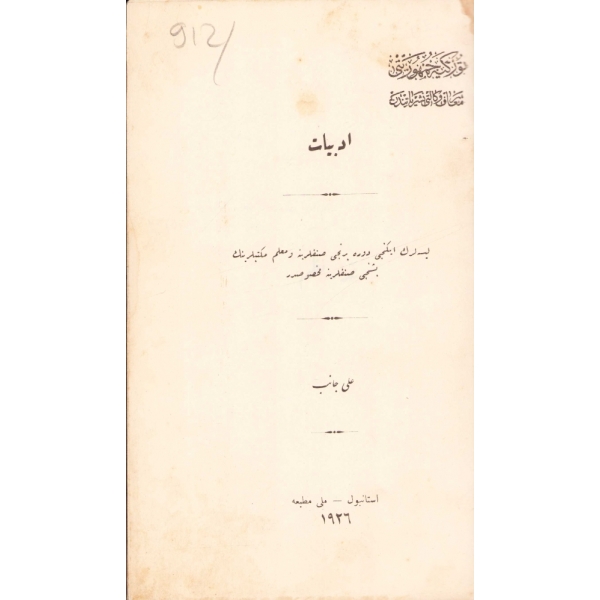 912/
توركيه جمهوريتى
معارف وكالتى نشرياتندن
ادبيات
ليسه لرك ايكنجى دوره برنجى صنفلرينه و معلم مكتبلرينك
بشنجى صنفلرينه مخصوصدر
على جانب
استانبول — ملى مطبعه
١٩٢٦